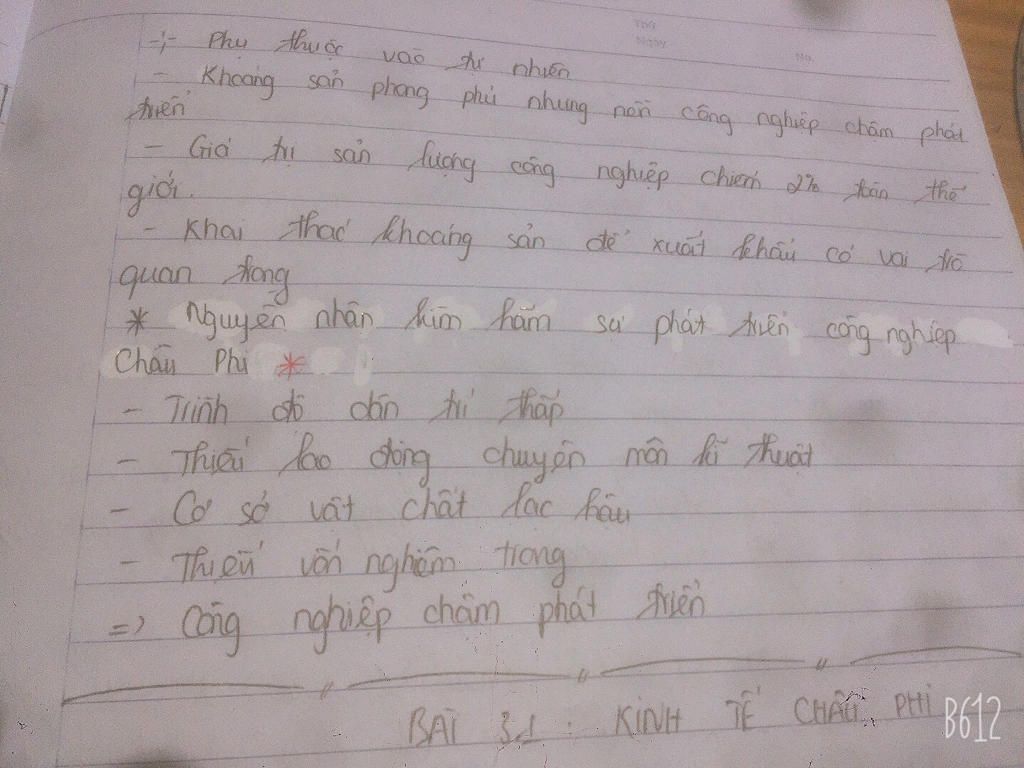 -:- Phụ thuộc vào tự nhiên
- Khoáng sản phong phú nhưng nền công nghiệp chậm phát
triển
- Giá trị sản lượng công nghiệp chiếm 2% toàn thế
giới.
- Khai thác khoáng sản để xuất khẩu có vai trò
quan trọng
* Nguyên nhân kìm hãm sự phát triển công nghiệp
Châu Phi *
- Trình độ dân trí thấp
- Thiếu lao động chuyên môn kĩ thuật
- Cơ sở vật chất lạc hậu
- Thiếu vốn nghiêm trọng
=> Công nghiệp chậm phát triển
BÀI 31: KINH TẾ CHÂU PHI
B612